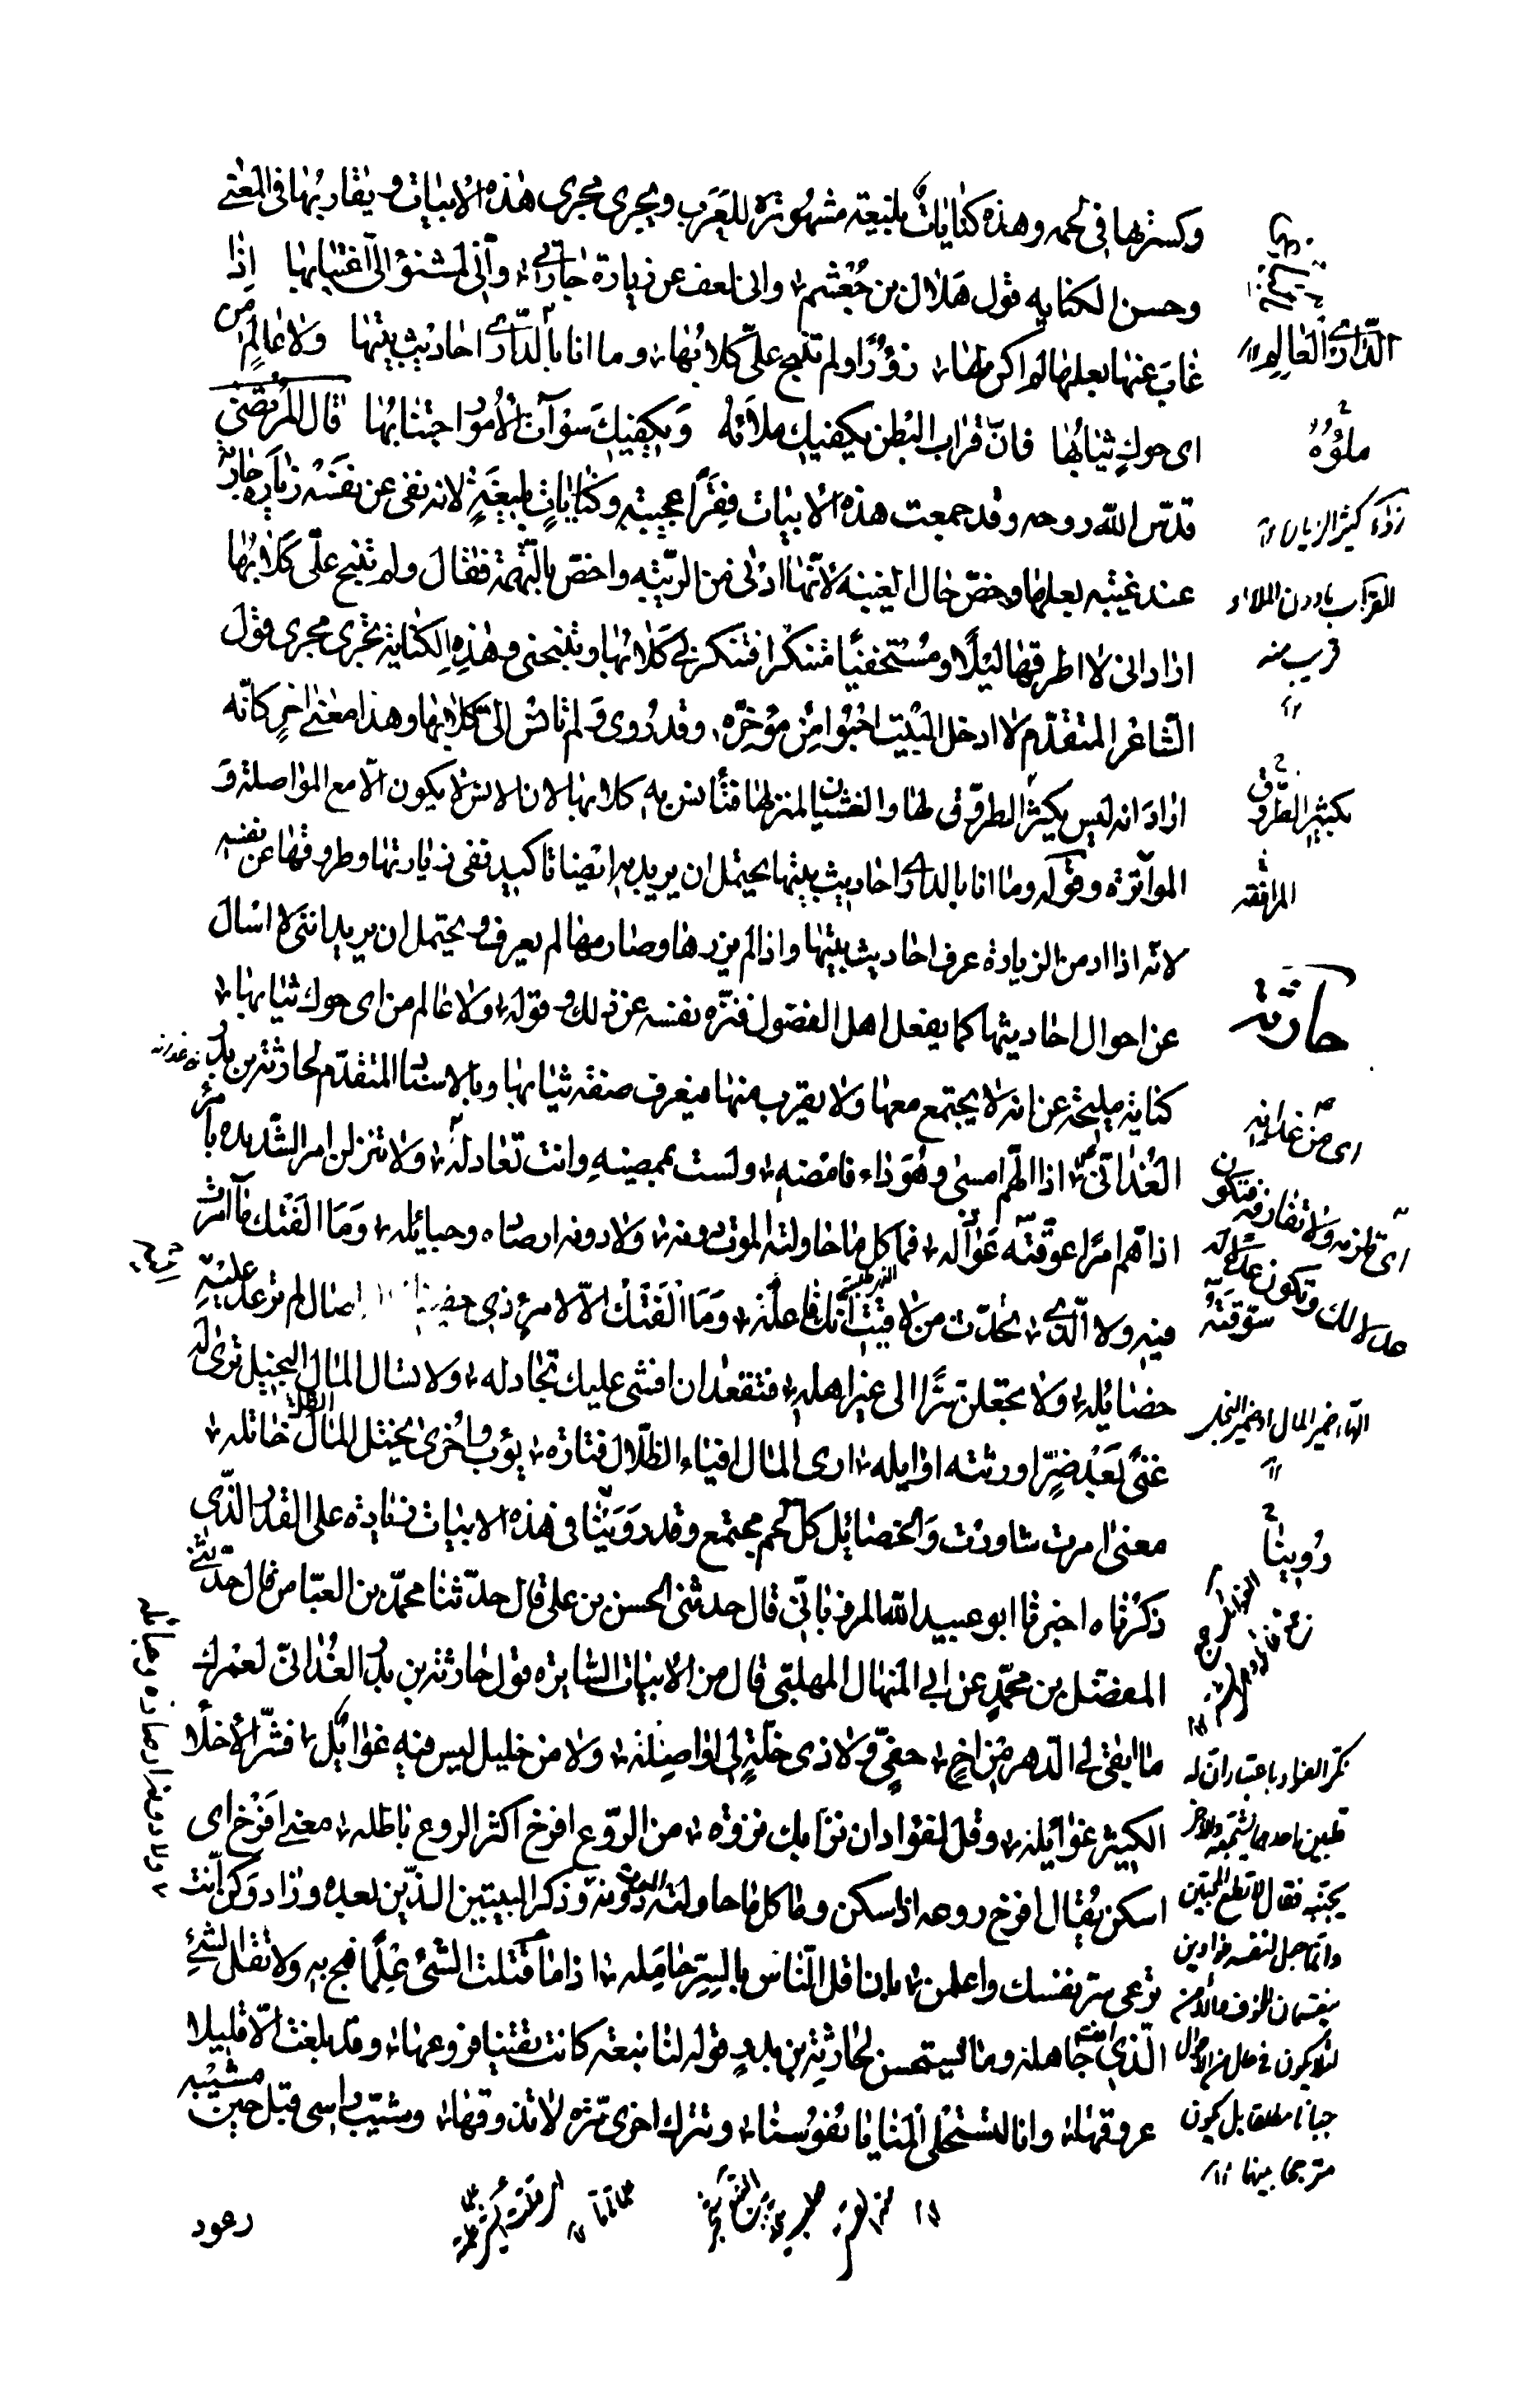 وكسرتها في لحمه وهذه كنايات بليغة مشهورة للعرب ويجرى مجرى هذه الابيات ويقاربها فى المعنى
وحسن الكناية قول هلال بن خثعم وانى لعف عن زيارة جارتى وانى لمشنؤ الى اغتيابها اذا
غاب عنها بعلها لم اكن لها زؤرا ولم تنبح علىّ كلابها وما انا بالدارى احاديث بيتها ولا عالم من
اى حوك ثيابها فانّ قراب البطن يكفيك ملاؤه ويكفيك سوآت الامور اجتنابها قال المرتضى
قدّس الله روحه وقد جمعت هذه الابيات فقرا عجيبة وكنايات بليغة لانه نفى عن نفسه زيارة جارته
عند غيبة بعلها وخصّ حال الغيبة لانّها ادنى من الريبة واخصّ بالتهمة فقال ولم تنبح علىّ كلابها
اراد انى لا اطرقها ليلا ومستخفيا متنكرا فتنكرنى كلابها وتنبحنى وهذه الكناية تجرى مجرى قول
الشاعر المتقدّم لا ادخل البيت احبوا من مؤخّره وقد روى ولم تانس الىّ كلابها وهذا معنى اخر كانّه
اراد انه ليس يكثر الطروق لها والغشيان لمنزلها فتأنس به كلابها لان الانس لا يكون الّا مع المواصلة و
المواترة وقوله وما انا بالدارى احاديث بيتها يحتمل ان يريد به ايضا تاكيد نفى زيارتها وطروقها عن نفسه
لانّه اذا ادمن الزيارة عرف احاديث بيتها واذا لم يزرها وصارمها لم يعرف ويحتمل ان يريد اننى لا اسال
عن احوال احاديثها كما يفعل اهل الفضول فنزّه نفسه عن ذلك وقوله ولا عالم من اى حوك ثيابها
كناية مليحة عن انه لا يجتمع معها ولا يقرب منها فيعرف صنفة ثيابها وبالاسناد المتقدّم لحارثة بن بدر
الغدانىّ اذا الهمّ امسى وهو داء فامضه ولست بممضيه وانت تعادله ولا تنزلن امر الشديدة بامرئ
اذا همّ امرا عوّقته عواذله فما كل ما حاولته الموت دونه ولا دونه ارصاده وحبائله وما الفتك ما آمرت
فيه ولا الذى تحدّث من لاقيت انّك فاعله وما الفتك الّا لامرئ ذى حفيظة اذا صال لم ترعد عليه
خصائله ولا تجعلن سرّا الى غير اهله فتقعد ان افشى عليك تجادله ولا تسال المال البخيل ترى له
غنى بعد ضرّ اورثته اوايله ارى المال افياء الظلال فتارة يؤب واخرى يختل المال خاتله
معنى امرت شاورت والخصايل كل لحم مجتمع وقد روينا فى هذه الابيات زيادة على القدر الذى
ذكرناه اخبرنا ابو عبيد الله المرزبانىّ قال حدثنى الحسن بن على قال حدّثنا محمّد بن العبّاس قال حدّثنى
المفضل بن محمّد عن ابى المنهال المهلبى قال من الابيات السايرة قول حارثة بن بدر الغدانىّ لعمرك
ما ابقى لى الدهر من اخ حفىّ ولا ذى خلّة لى اواصله ولا من خليل ليس فيه غوايل فشرّ الاخلا
الكثير غوائله وقل لفؤاد ان نزا بك نزوة من الروّع افرخ اكثر الروع باطله معنى افرخ اى
اسكن يقال افرخ روعه اذا سكن وما كل ما حاولته الموت دونه وذكر البيتين الذين بعده وزاد وكن انت
ترعى سرّ نفسك واعلمن بان اقل الناس بالسرّ حامله اذا ما قتلت الشئ علما فبح به ولا تقل الشئ
الذى انت جاهله ومما يستحسن لحارثة بن بدر قوله لنا نبعة كانت تقينا فروعها وقد بلغت الّا قليلا
عروقها وانا لتستحلى المنايا نفوسنا وتترك اخرى مرّة لا تذوقها وشيّب راسى قبل حين مشيبه
رعود
الدارى العالم
ملؤه
زؤر كثير الزيارة
القراب بادرن الملاء
قريب منه
بكثير الطروق
المرافقه
حارثة
اى من غدانه
الهاء ضمير المال او ضمير البخل
روينا
نكّر الفؤاد باعتبار انّ له
قلبين احدهما يشجّعه والاخر
يجبّنه فقال
وانّما جعل لنفسه فؤادين
لئلا يكون فى حال من الاحوال
جبانا مطلقا بل يكون
مترجحا بينهما
ولا دونه ارصاده وحبائله